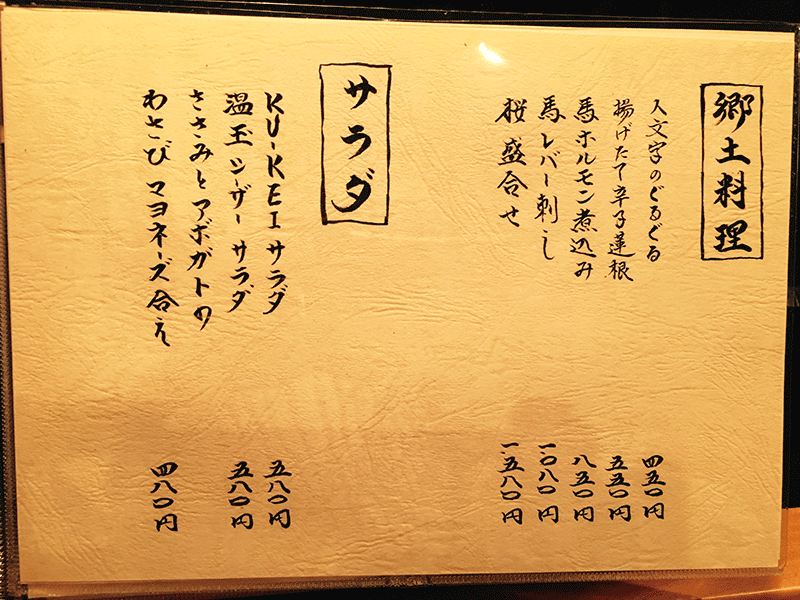 郷土料理
人文字のぐるぐる 四五〇円
揚げたて辛子蓮根 五五〇円
馬ホルモン煮込み 八五〇円
馬レバー刺し 一〇八〇円
桜盛合せ 一五八〇円
サラダ
KU-KEIサラダ 五八〇円
温玉シーザーサラダ 五八〇円
ささみとアボガトの
わさびマヨネーズ合え 四八〇円